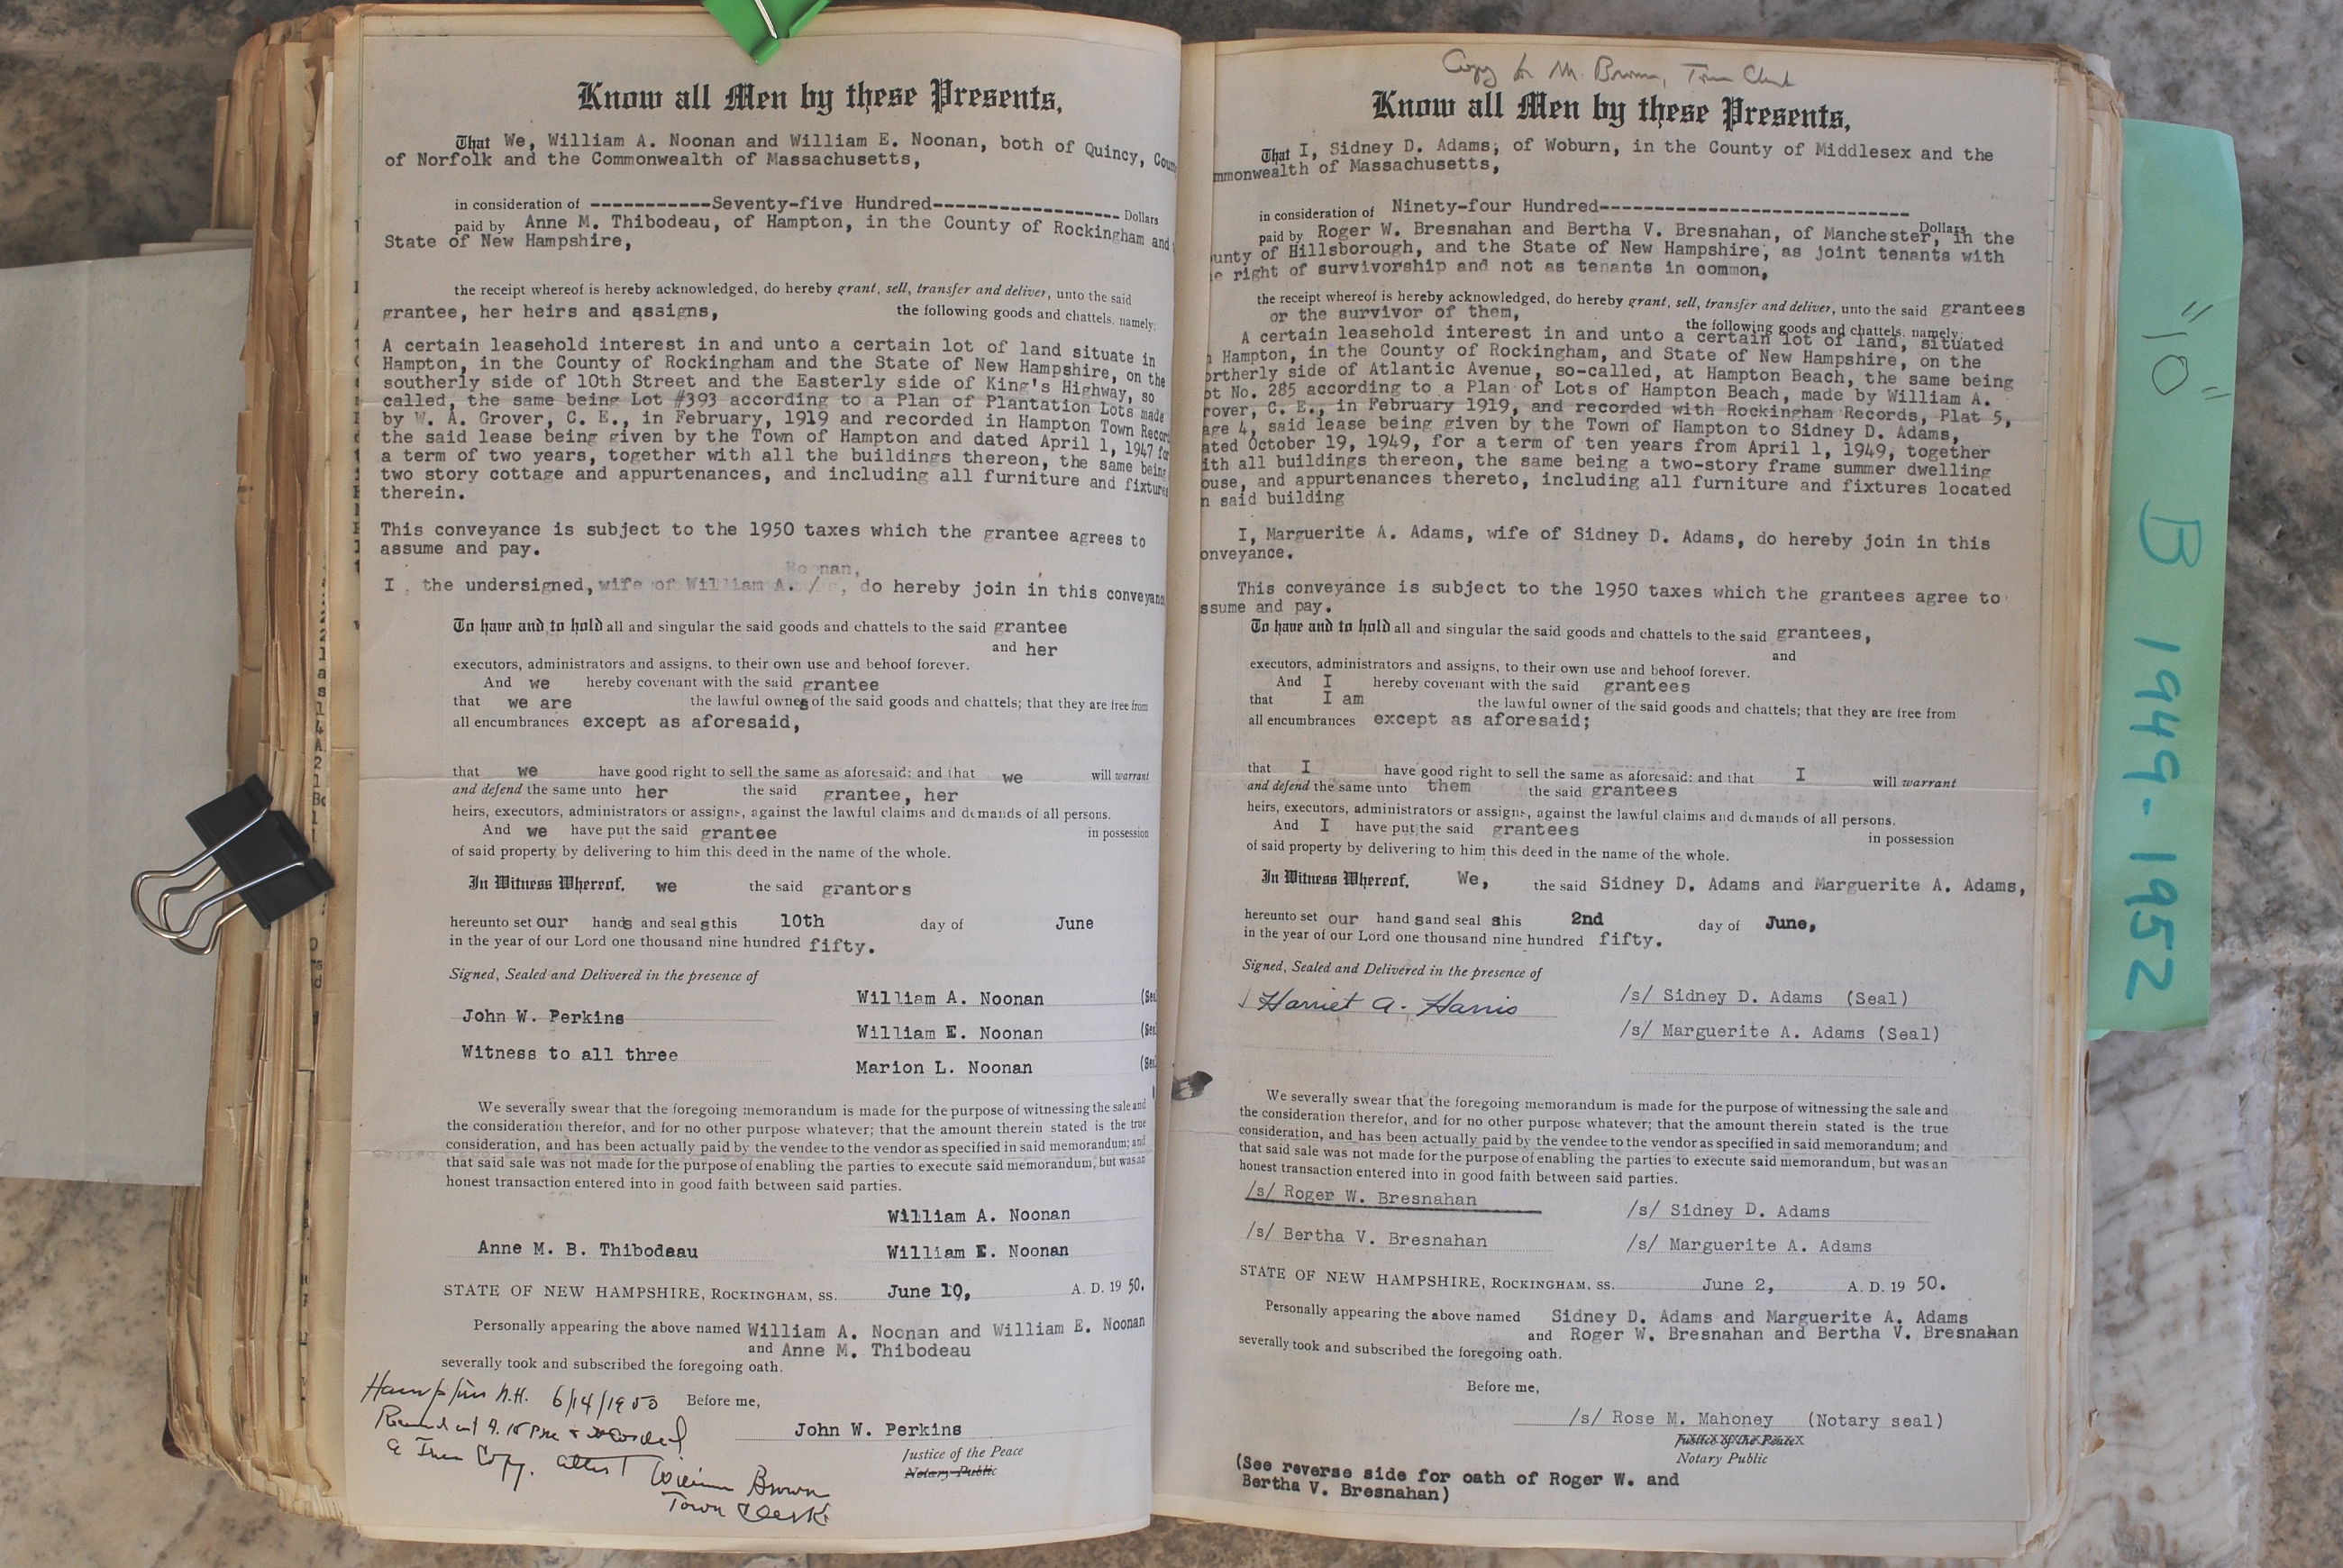 Know all Men by these Presents,
That We, William A. Noonan and William E. Noonan, both of Quincy, Coun
of Norfolk and the Commonwealth of Massachusetts,
in consideration of -----------Seventy-five Hundred------------------ Dollars
paid by Anne M. Thibodeau, of Hampton, in the County of Rockingham and
State of New Hampshire,
the receipt whereof is hereby acknowledged, do hereby grant, sell, transfer and deliver, unto the said
grantee, her heirs and assigns, the following goods and chattels, namely;
A certain leasehold interest in and unto a certain lot of land situate in
Hampton, in the County of Rockingham and the State of New Hampshire, on the
southerly side of 10th Street and the Easterly side of King's Highway, so
called, the same being Lot #393 according to a Plan of Plantation Lots made
by W. A. Grover, C. E., in February, 1919 and recorded in Hampton Town Record
the said lease being given by the Town of Hampton and dated April 1, 1947 for
a term of two years, together with all the buildings thereon, the same being
two story cottage and appurtenances, and including all furniture and fixtures
therein.
This conveyance is subject to the 1950 taxes which the grantee agrees to
assume and pay.
Noonan,
I , the undersigned, wife of William A. / , do hereby join in this conveyanc
To have and to hold all and singular the said goods and chattels to the said grantee
and her
executors, administrators and assigns, to their own use and behoof forever.
And we hereby covenant with the said grantee
that we are the lawful owners of the said goods and chattels; that they are free from
all encumbrances except as aforesaid,
that we have good right to sell the same as aforesaid: and that we will warrant
and defend the same unto her the said grantee, her
heirs, executors, administrators or assigns, against the lawful claims and demands of all persons.
And we have put the said grantee in possession
of said property by delivering to him this deed in the name of the whole.
In Witness Whereof, we the said grantors
hereunto set our hands and seal s this 10th day of June
in the year of our Lord one thousand nine hundred fifty.
Signed, Sealed and Delivered in the presence of
William A. Noonan (Sea
John W. Perkins
William E. Noonan (Sea
Witness to all three
Marion L. Noonan (Sea
We severally swear that the foregoing memorandum is made for the purpose of witnessing the sale and
the consideration therefor, and for no other purpose whatever; that the amount therein stated is the true
consideration, and has been actually paid by the vendee to the vendor as specified in said memorandum; and
that said sale was not made for the purpose of enabling the parties to execute said memorandum, but was an
honest transaction entered into in good faith between said parties.
William A. Noonan
Anne M. B. Thibodeau William E. Noonan
STATE OF NEW HAMPSHIRE, ROCKINGHAM, SS. June 10, A. D. 19 50.
Personally appearing the above named William A. Noonan and William E. Noonan
and Anne M. Thibodeau
severally took and subscribed the foregoing oath.
Before me,
John W. Perkins
Justice of the Peace
Notary Public
N.H. 6/14/1950
& recorded
a True Copy. attest William Brown
Town Clerk
Copy for M. Brown, Town Clerk
Know all Men by these Presents,
That I, Sidney D. Adams, of Woburn, in the County of Middlesex and the
mmonwealth of Massachusetts,
in consideration of Ninety-four Hundred----------------------------- Dollars
paid by Roger W. Bresnahan and Bertha V. Bresnahan, of Manchester, in the
unty of Hillsborough, and the State of New Hampshire, as joint tenants with
e right of survivorship and not as tenants in common,
the receipt whereof is hereby acknowledged, do hereby grant, sell, transfer and deliver, unto the said grantees
or the survivor of them,
the following goods and chattels, namely;
A certain leasehold interest in and unto a certain lot of land, situated
n Hampton, in the County of Rockingham, and State of New Hampshire, on the
ortherly side of Atlantic Avenue, so-called, at Hampton Beach, the same being
ot No. 285 according to a Plan of Lots of Hampton Beach, made by William A.
rover, C. E., in February 1919, and recorded with Rockingham Records, Plat 5,
age 4, said lease being given by the Town of Hampton to Sidney D. Adams,
ated October 19, 1949, for a term of ten years from April 1, 1949, together
ith all buildings thereon, the same being a two-story frame summer dwelling
ouse, and appurtenances thereto, including all furniture and fixtures located
n said building
I, Marguerite A. Adams, wife of Sidney D. Adams, do hereby join in this
onveyance.
This conveyance is subject to the 1950 taxes which the grantees agree to
ssume and pay.
To have and to hold all and singular the said goods and chattels to the said grantees,
and
executors, administrators and assigns, to their own use and behoof forever.
And I hereby covenant with the said grantees
that I am the lawful owner of the said goods and chattels; that they are free from
all encumbrances except as aforesaid;
that I have good right to sell the same as aforesaid: and that I will warrant
and defend the same unto them the said grantees
heirs, executors, administrators or assigns, against the lawful claims and demands of all persons.
And I have put the said grantees in possession
of said property by delivering to him this deed in the name of the whole.
In Witness Whereof, We, the said Sidney D. Adams and Marguerite A. Adams,
hereunto set our hand s and seal s this 2nd day of June,
in the year of our Lord one thousand nine hundred fifty.
Signed, Sealed and Delivered in the presence of
Harriet A. Harris /s/ Sidney D. Adams (Seal)
/s/ Marguerite A. Adams (Seal)
We severally swear that the foregoing memorandum is made for the purpose of witnessing the sale and
the consideration therefor, and for no other purpose whatever; that the amount therein stated is the true
consideration, and has been actually paid by the vendee to the vendor as specified in said memorandum; and
that said sale was not made for the purpose of enabling the parties to execute said memorandum, but was an
honest transaction entered into in good faith between said parties.
/s/ Roger W. Bresnahan /s/ Sidney D. Adams
/s/ Bertha V. Bresnahan /s/ Marguerite A. Adams
STATE OF NEW HAMPSHIRE, ROCKINGHAM, SS. June 2, A. D. 19 50.
Personally appearing the above named Sidney D. Adams and Marguerite A. Adams
and Roger W. Bresnahan and Bertha V. Bresnahan
severally took and subscribed the foregoing oath.
Before me,
/s/ Rose M. Mahoney (Notary seal)
Justice of the Peace
Notary Public
(See reverse side for oath of Roger W. and
Bertha V. Bresnahan)
"10" B 1949-1952